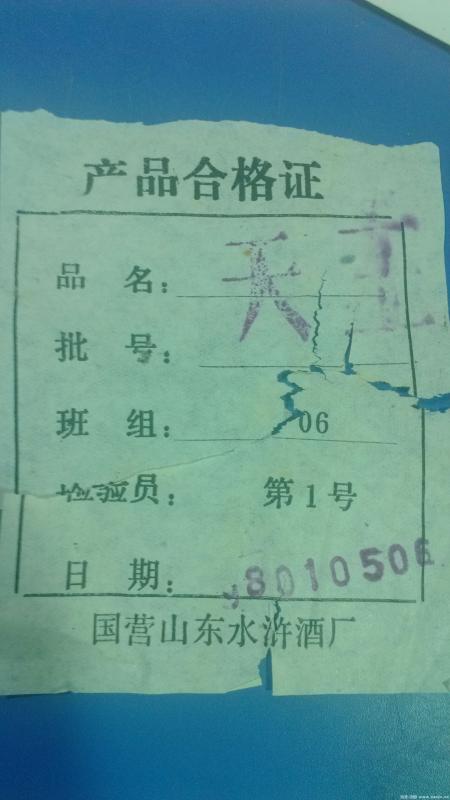 产品合格证
品 名：天
批 号：
班 组：06
检验员：第1号
日 期：y8010506
国营山东水浒酒厂